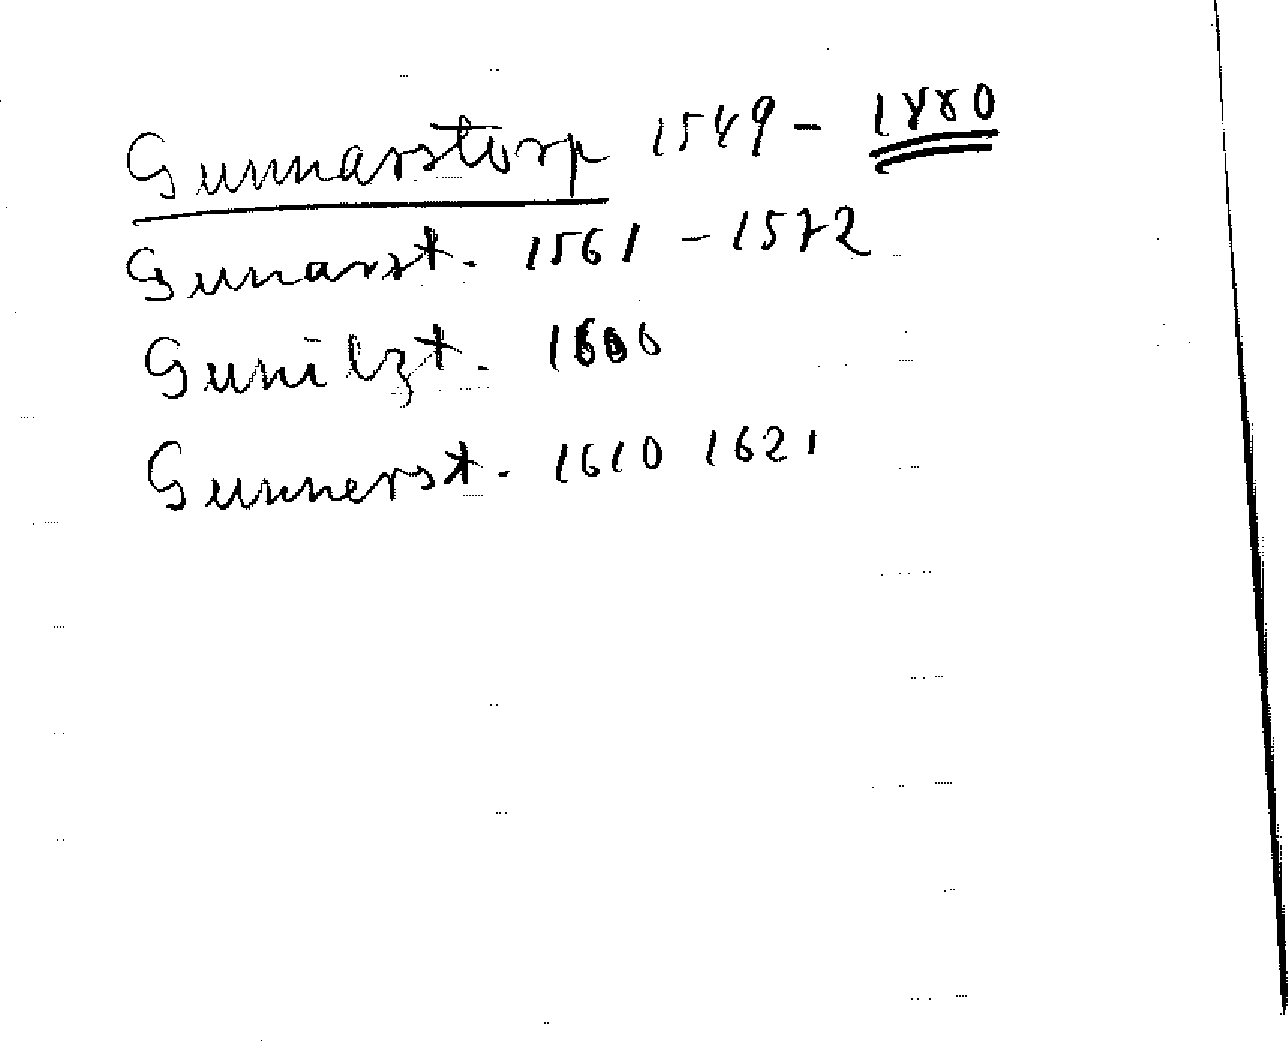 Gunnarstorp 1549 - 1880
Gunarst. 1561 - 1572
Gunilzt. 1600
Gunnerst. 1610 1621